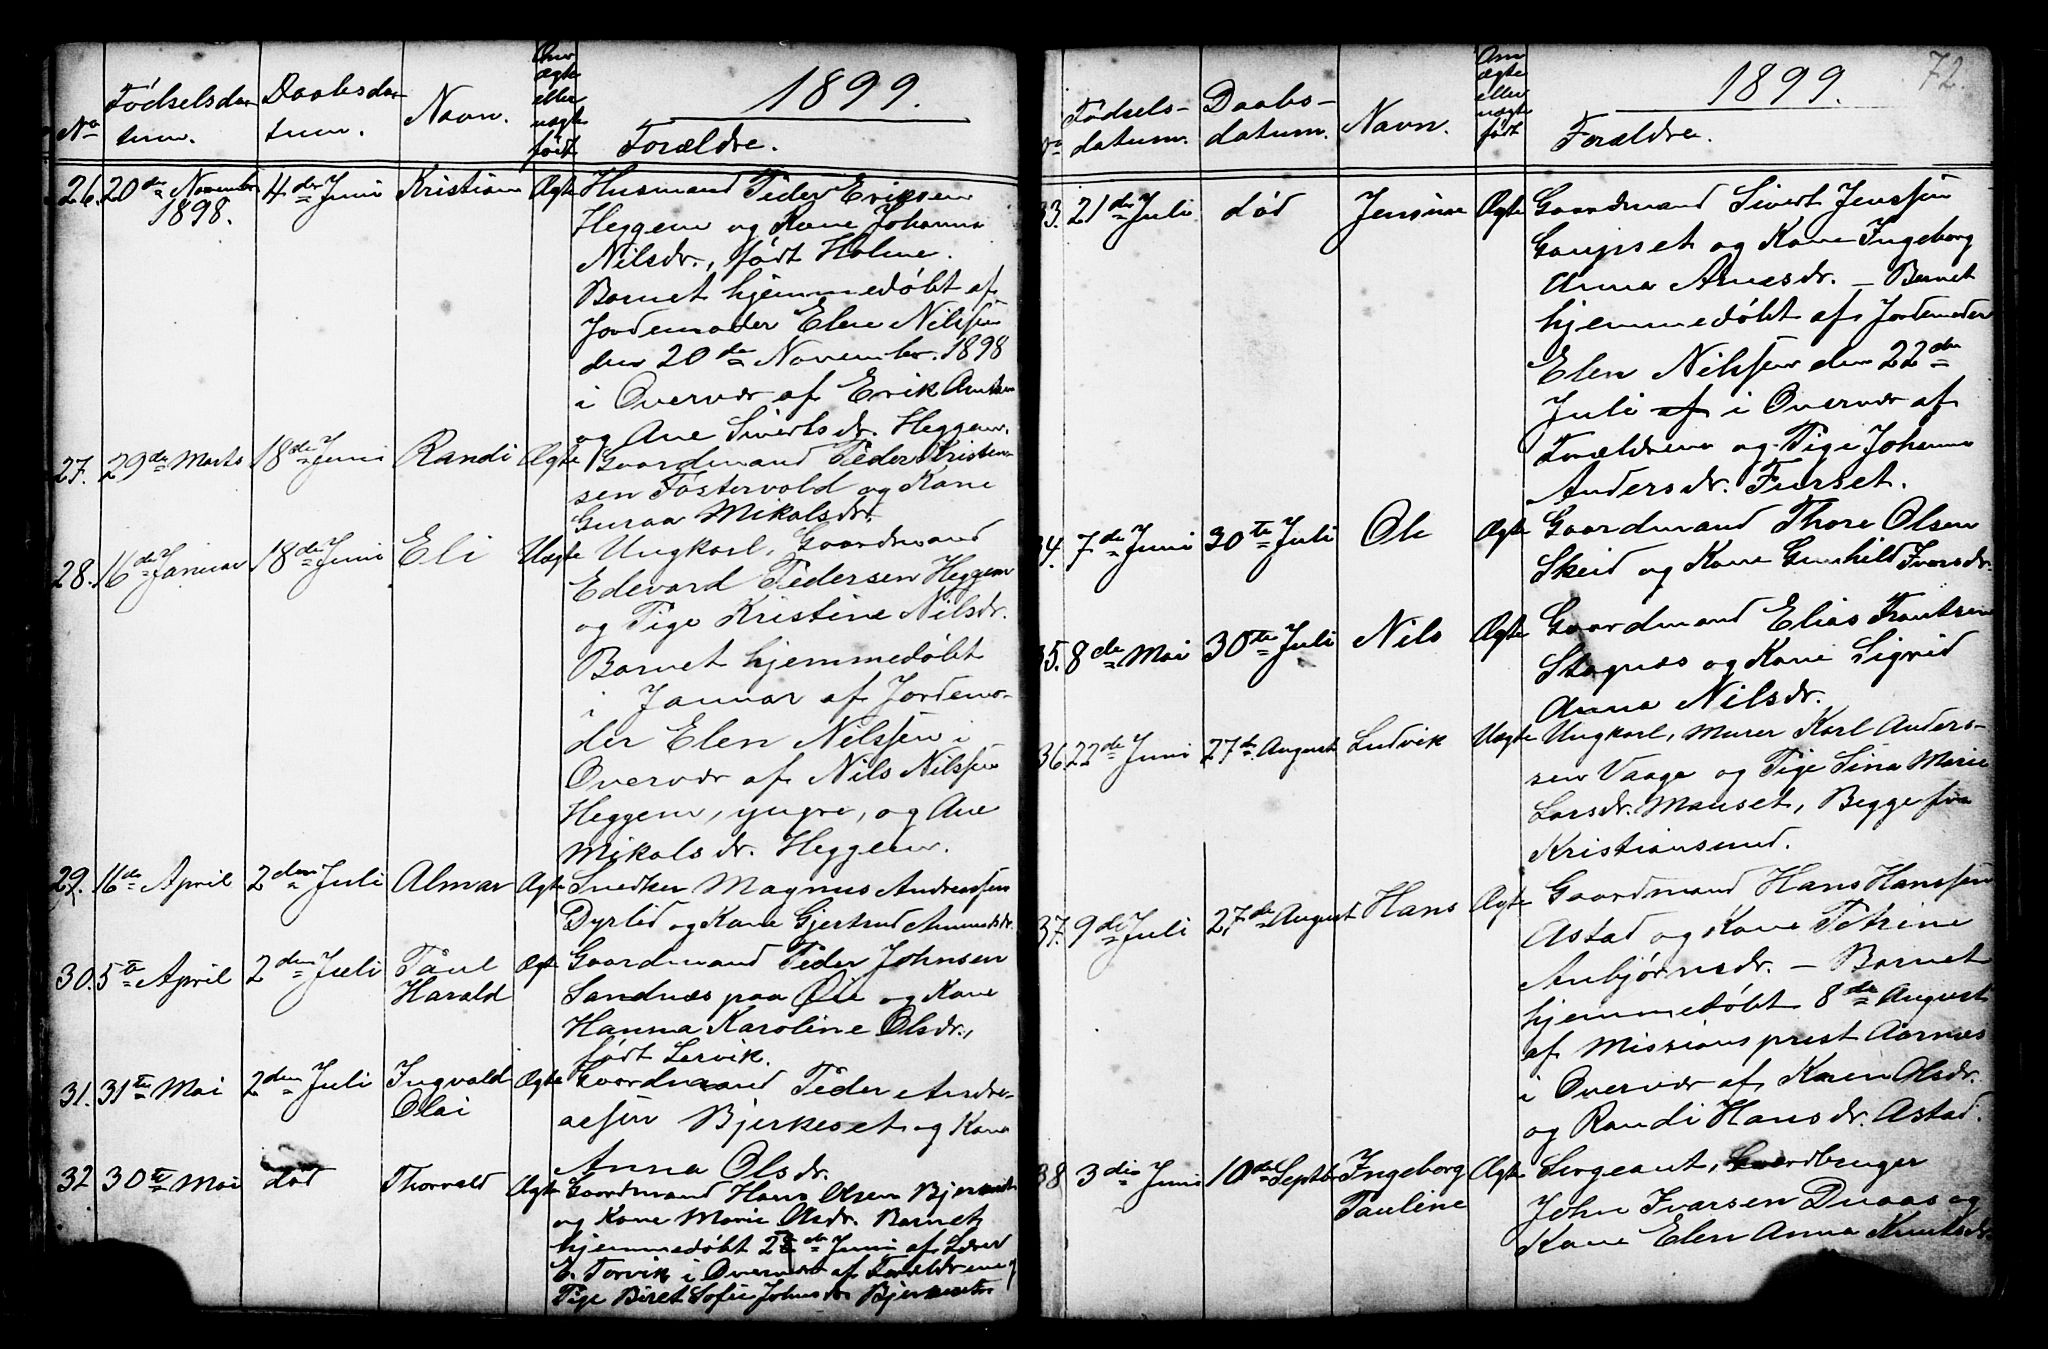 1899.
No
Fødselsda-
tum.
Daabsda-
tum.
Navn.
Om
ægte
eller
uægte
født
Forældre.
26. 20de November 4de Juni Kristian Ægte Husmand Peder Eriksen
1898.
Heggem og Kone Johanna
Nilsdr., født Holme.
Barnet hjemmedøbt af
Jordemoder Elen Nilssen
den 20de November 1898
i Overvær af Erik
og Ane Sivertsdr. Heggem.
27. 29de Marts 18de Juni Randi Ægte Gaardmand Peder Kristen-
sen Fostervold og Kone
Guraa Mikalsdr.
28. 16de Januar 18de Juni Eli Uægte Ungkarl, Gaardmand
Edevard Pedersen Heggem
og Pige Kristine Nilsdr.
Barnet hjemmedøbt
i Januar af Jordemo-
der Elen Nilssen i
Overvær af Nils Nilssen
Heggem, yngre, og Ane
Mikalsdr. Heggem.
29. 16de April 2den Juli Almar Ægte Snedker Magnus Andreassen
Dyrlid og Kone Gjertrud Amundsdr.
30. 5te April 2den Juli Paul Ægte Gaardmand Peder Johnsen
Harald
Sandnæs paa Øie og Kone
Hanna Karoline Olsdr.,
født Lervik.
31. 31te Mai 2den Juli Ingvald Ægte Gaardmand Peder Andre-
Olai
assen Bjerkeset og Kone
Anna Olsdr.
32 30te Mai død Thorvald Ægte Gaardmand Hans Olsen
og Kone Marie Olsdr. Barnet
hjemmedøbt 28de Juni af Lærer
E. Torvik i Overvær af Forældrene og
Pige Beret Sofie Johnsdr.
72.
1899.
No
Fødsels-
datum.
Daabs-
datum.
Navn.
Om
ægte
eller
uægte
født
Forældre.
33. 21de Juli død Jensine Ægte Gaardmand Sivert Jenssen
Gaupset og Kone Ingeborg
Anna Arnesdr. - Barnet
hjemmedøbt af Jordemoder
Elen Nilssen den 22de
Juli af i Overvær af
Forældrene og Pige Johanna
Andersdr. Furset.
34. 7de Juni 30te Juli Ole Ægte Gaardmand Thore Olsen
Skeid og Kone Gunhild Iversdr.
35. 8de Mai 30te Juli Nils Ægte Gaardmand Elias Frantsen
Stagnæs og Kone Sigrid
Anna Nilsdr.
36 22de Juni 27de August Ludvik Uægte Ungkarl, Murer Karl Anders-
sen Vaage og Pige Sina Marie
Larsdr. Mauset, Begge fra
Kristiansund.
37. 9de Juli 27de August Hans Ægte Gaardmand Hans Hanssen
Astad og Kone Petrine
Anbjørnsdr. - Barnet
hjemmedøbt 8de August
af Missionsprest Aarnes
i Overvær af Karen Olsdr.
og Randi Hansdr. Astad.
38 3die Juni 10de Septb. Ingeborg Ægte Sergeant, Gaardbruger
Pauline
John Ivarsen Duaas og
Kone Elen Anna Knutsdr.